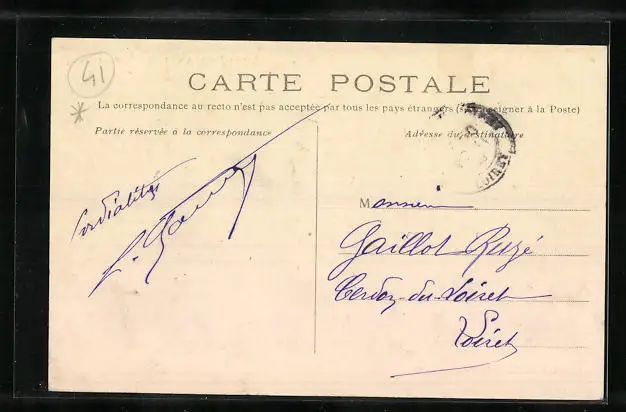 41
CARTE POSTALE
La correspondance au recto n'est pas acceptée par tous les pays étrangers (se renseigner à la Poste)
Partie réservée à la correspondance
Adresse du destinataire
LOIRET
Cordialités
Monsieur
Gaillot Ruzé
Cerdon-du-Loiret
Loiret